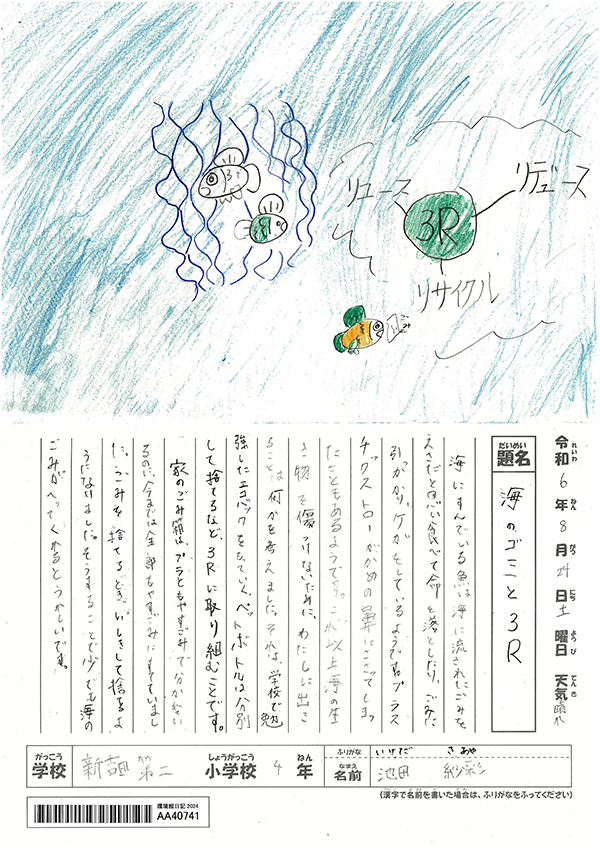 リユース
リデュース
3R
リサイクル
ごみ
令和6年8月24日土曜日 天気 晴れ
れいわ ねん がつ にち ようび てんき
だいめい
題名
海のゴミと3R
海にすんでいる魚は海に流されたごみを、
えさだと思い食べて命を落としたり、ごみに
引っかかり、ケガをしているようです。プラス
チックストローがかめの鼻にささってしまっ
たこともあるようです。これ以上海の生
き物を傷つけないために、わたしに出き
ることは何かを考えました。それは、学校で勉
強したエコバックをもっていく、ペットボトルは分別
して捨てるなど、3Rに取り組むことです。
家のごみ箱は、プラともやすごみで分かれてい
るのに、今までは全部もやすごみにすてていまし
た。ごみを捨てるとき、いしきして捨てるよ
うになりました。そうすることで少しでも海の
ごみがへってくれるとうれしいです。
がっこう
学校
新吉田第二
しょうがっこう
小学校
4
ねん
年
ふりがな
いけだ さあや
なまえ
名前
池田 紗彩
(漢字で名前を書いた場合は、ふりがなをふってください)
環境絵日記 2024
AA40741